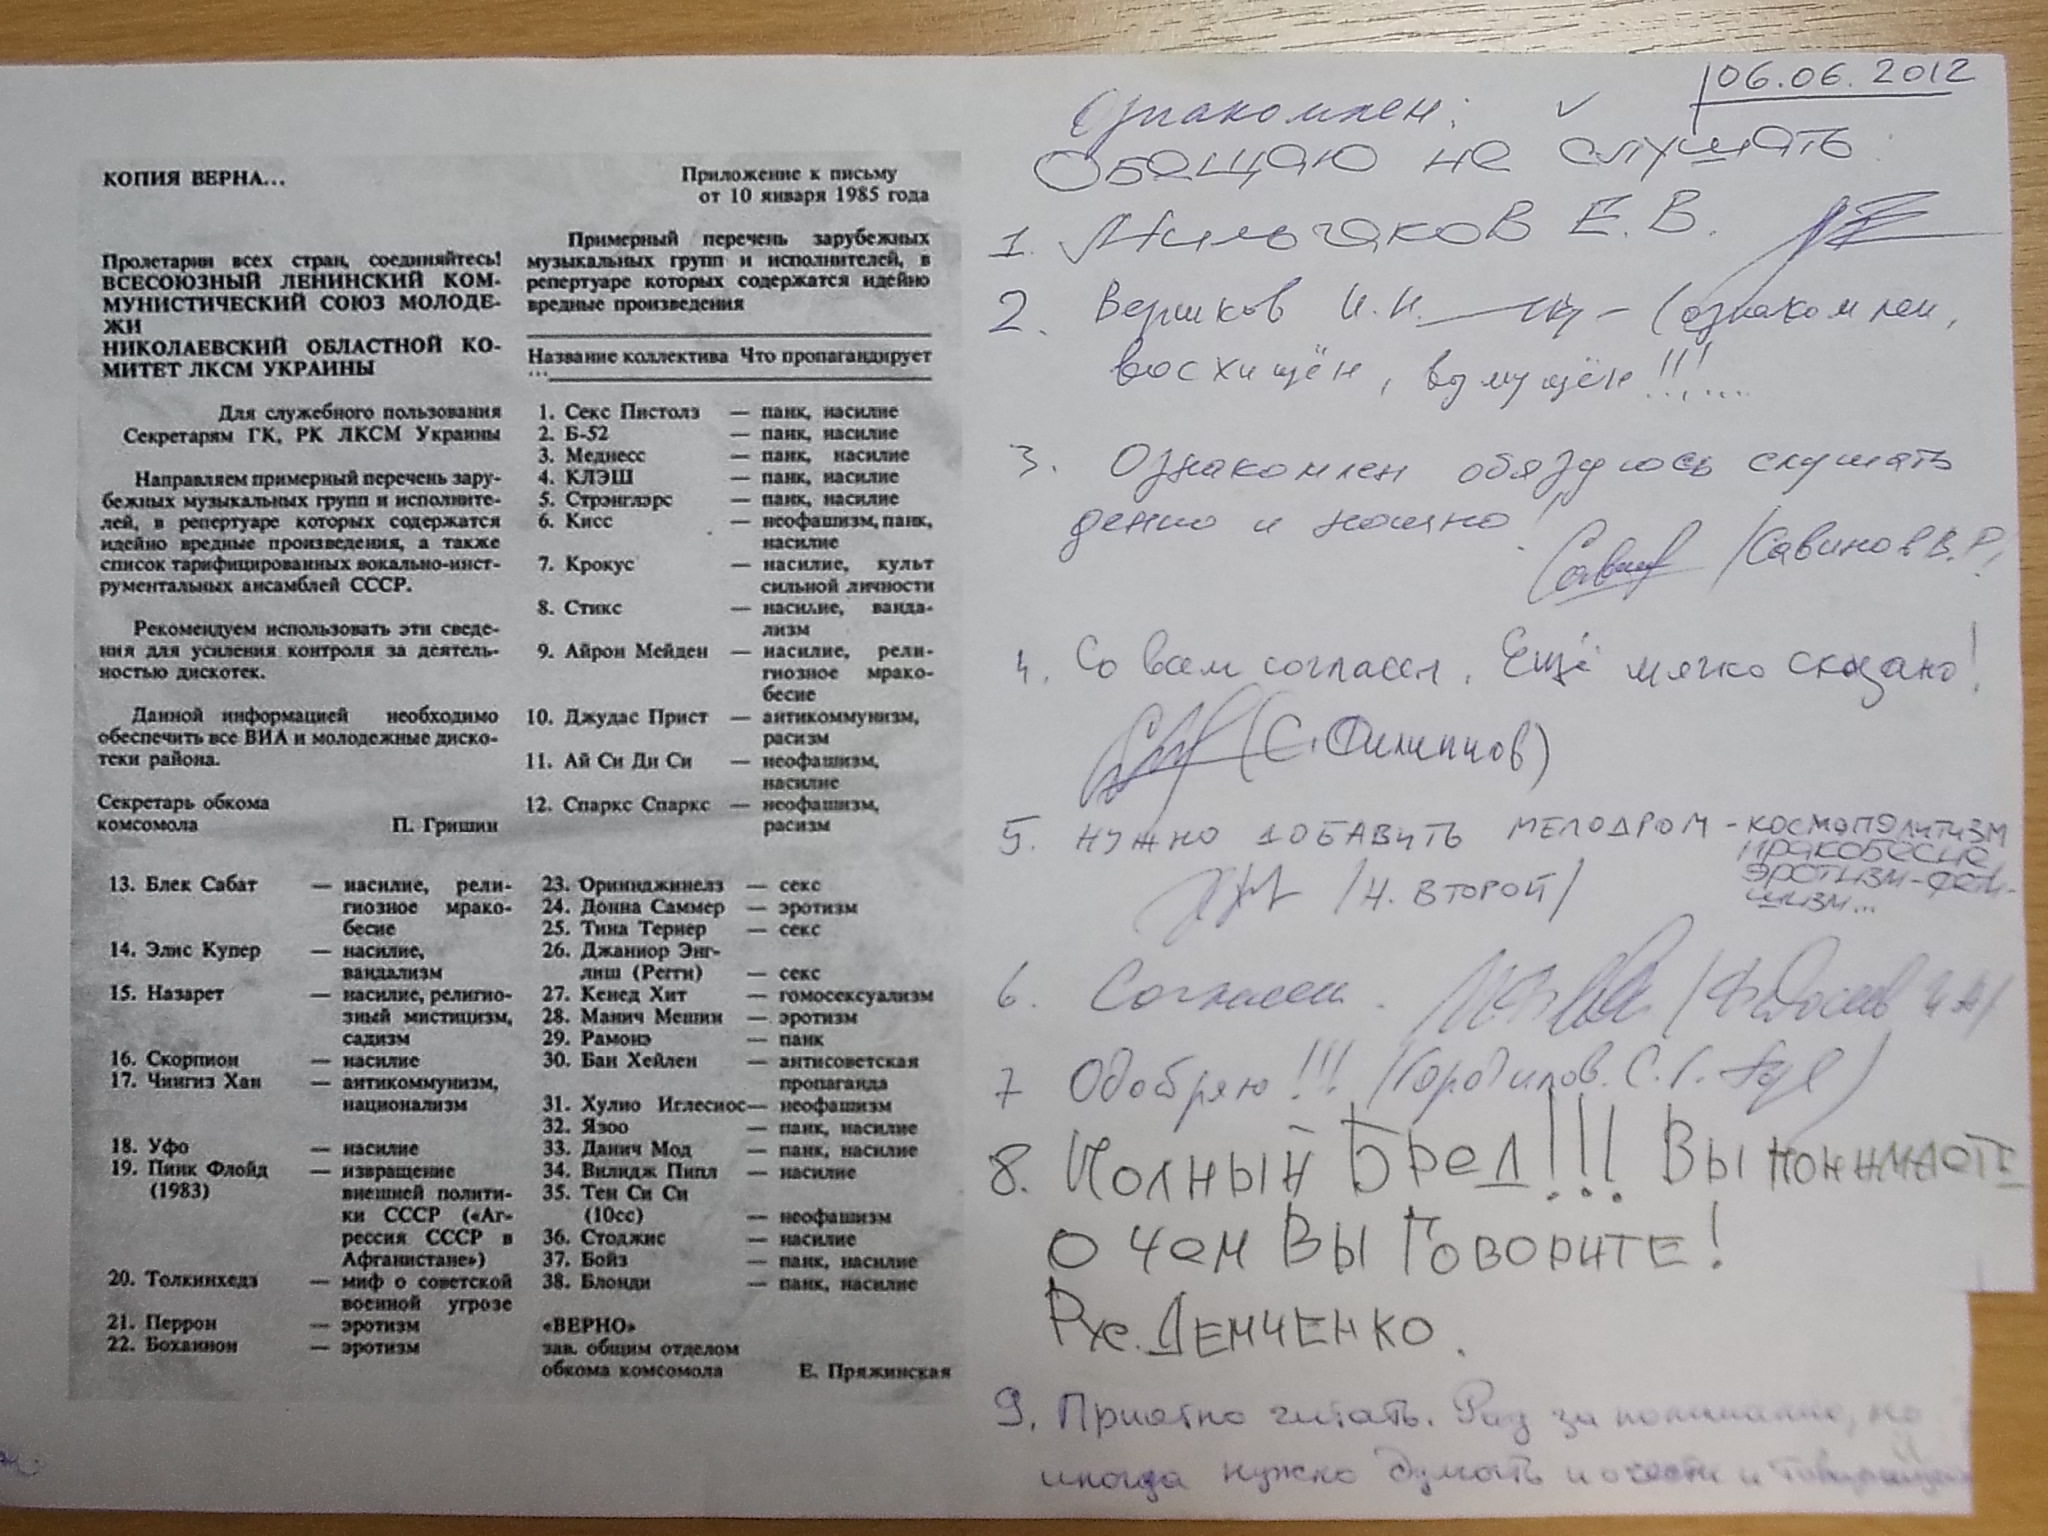 КОПИЯ ВЕРНА...
Пролетарии всех стран, соединяйтесь!
ВСЕСОЮЗНЫЙ ЛЕНИНСКИЙ КОМ-
МУНИСТИЧЕСКИЙ СОЮЗ МОЛОДЕ-
ЖИ
НИКОЛАЕВСКИЙ ОБЛАСТНОЙ КО-
МИТЕТ ЛКСМ УКРАИНЫ
Для служебного пользования
Секретарям ГК, РК ЛКСМ Украины
Направляем примерный перечень зару-
бежных музыкальных групп и исполните-
лей, в репертуаре которых содержатся
идейно вредные произведения, а также
список тарифицированных вокально-инст-
рументальных ансамблей СССР.
Рекомендуем использовать эти сведе-
ния для усиления контроля за деятель-
ностью дискотек.
Данной информацией необходимо
обеспечить все ВИА и молодежные диско-
теки района.
Секретарь обкома
комсомола П. Гришин
Приложение к письму
от 10 января 1985 года
Примерный перечень зарубежных
музыкальных групп и исполнителей, в
репертуаре которых содержатся идейно
вредные произведения
Название коллектива Что пропагандирует
...
1. Секс Пистолз — панк, насилие
2. Б-52 — панк, насилие
3. Меднесс — панк, насилие
4. КЛЭШ — панк, насилие
5. Стрэнглэрс — панк, насилие
6. Кисс — неофашизм, панк,
насилие
7. Крокус — насилие, культ
сильной личности
8. Стикс — насилие, ванда-
лизм
9. Айрон Мейден — насилие, рели-
гиозное мрако-
бесие
10. Джудас Прист — антикоммунизм,
расизм
11. Ай Си Ди Си — неофашизм,
насилие
12. Спаркс Спаркс — неофашизм,
расизм
13. Блек Сабат — насилие, рели-
гиозное мрако-
бесие
14. Элис Купер — насилие,
вандализм
15. Назарет — насилие, религио-
зный мистицизм,
садизм
16. Скорпион — насилие
17. Чингиз Хан — антикоммунизм,
национализм
18. Уфо — насилие
19. Пинк Флойд — извращение
(1983) внешней полити-
ки СССР («Аг-
рессия СССР в
Афганистане»)
20. Толкинхедз — миф о советской
военной угрозе
21. Перрон — эротизм
22. Боханнон — эротизм
23. Ориниджинелз — секс
24. Донна Саммер — эротизм
25. Тина Тернер — секс
26. Джаниор Энг-
лиш (Регги) — секс
27. Кенед Хит — гомосексуализм
28. Манич Мешин — эротизм
29. Рамонэ — панк
30. Ван Хейлен — антисоветская
пропаганда
31. Хулио Иглесиос — неофашизм
32. Язоо — панк, насилие
33. Данич Мод — панк, насилие
34. Вилидж Пипл — насилие
35. Тен Си Си
(10сс) — неофашизм
36. Стоджис — насилие
37. Бойз — панк, насилие
38. Блонди — панк, насилие
«ВЕРНО»
зав. общим отделом
обкома комсомола Е. Пряжинская
06.06.2012
Ознакомлен:
Обещаю не слушать:
1. Мильчаков Е. В.
2. Вершков И. И. — (ознакомлен,
восхищён, возмущён!!!.....
3. Ознакомлен обязуюсь слушать
денно и нощно!
/Савинов В. Р./
4. Со всем согласен. Ещё мягко сказано!
(С. Филиппов)
5. НУЖНО ДОБАВИТЬ МЕЛОДРОМ - КОСМОПОЛИТИЗМ
МРАКОБЕСИЕ
ЭРОТИЗМ-ФЕМИ-
НИЗМ...
/Н. ВТОРОЙ/
6. Согласен. /Федосеев
7 Одобряю!!! /Городилов. С. Г.
8. Полный Бред!!! Вы понимаете
о чем Вы Говорите!
Рус. Демченко.
9. Приятно читать. Рад за понимание, но
иногда нужно думать и о чести и